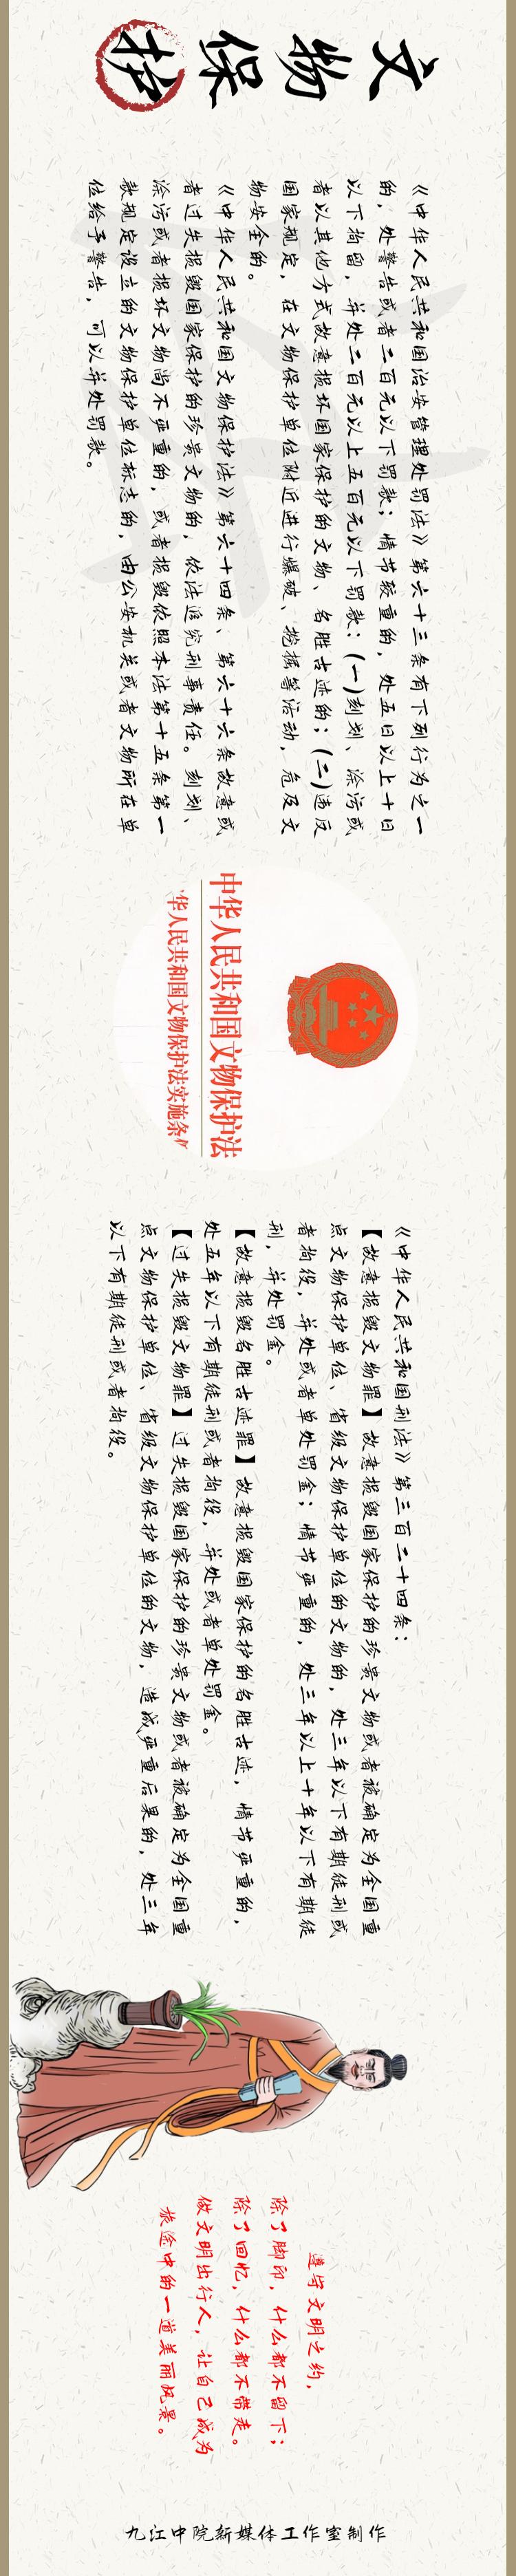 文物保护
《中华人民共和国治安管理处罚法》第六十三条有下列行为之一
的，处警告或者二百元以下罚款；情节较重的，处五日以上十日
以下拘留，并处二百元以上五百元以下罚款：(一)刻划、涂污或
者以其他方式故意损坏国家保护的文物、名胜古迹的；(二)违反
国家规定，在文物保护单位附近进行爆破、挖掘等活动，危及文
物安全的。
《中华人民共和国文物保护法》第六十四条、第六十六条故意或
者过失损毁国家保护的珍贵文物的，依法追究刑事责任。刻划、
涂污或者损坏文物尚不严重的，或者损毁依照本法第十五条第一
款规定设立的文物保护单位标志的，由公安机关或者文物所在单
位给予警告，可以并处罚款。
中华人民共和国文物保护法
华人民共和国文物保护法实施条
《中华人民共和国刑法》第三百二十四条：
【故意损毁文物罪】故意损毁国家保护的珍贵文物或者被确定为全国重
点文物保护单位、省级文物保护单位的文物的，处三年以下有期徒刑或
者拘役，并处或者单处罚金；情节严重的，处三年以上十年以下有期徒
刑，并处罚金。
【故意损毁名胜古迹罪】故意损毁国家保护的名胜古迹，情节严重的，
处五年以下有期徒刑或者拘役，并处或者单处罚金。
【过失损毁文物罪】过失损毁国家保护的珍贵文物或者被确定为全国重
点文物保护单位、省级文物保护单位的文物，造成严重后果的，处三年
以下有期徒刑或者拘役。
遵守文明之约，
除了脚印，什么都不留下；
除了回忆，什么都不带走。
做文明出行人，让自己成为
旅途中的一道美丽风景。
九江中院新媒体工作室制作